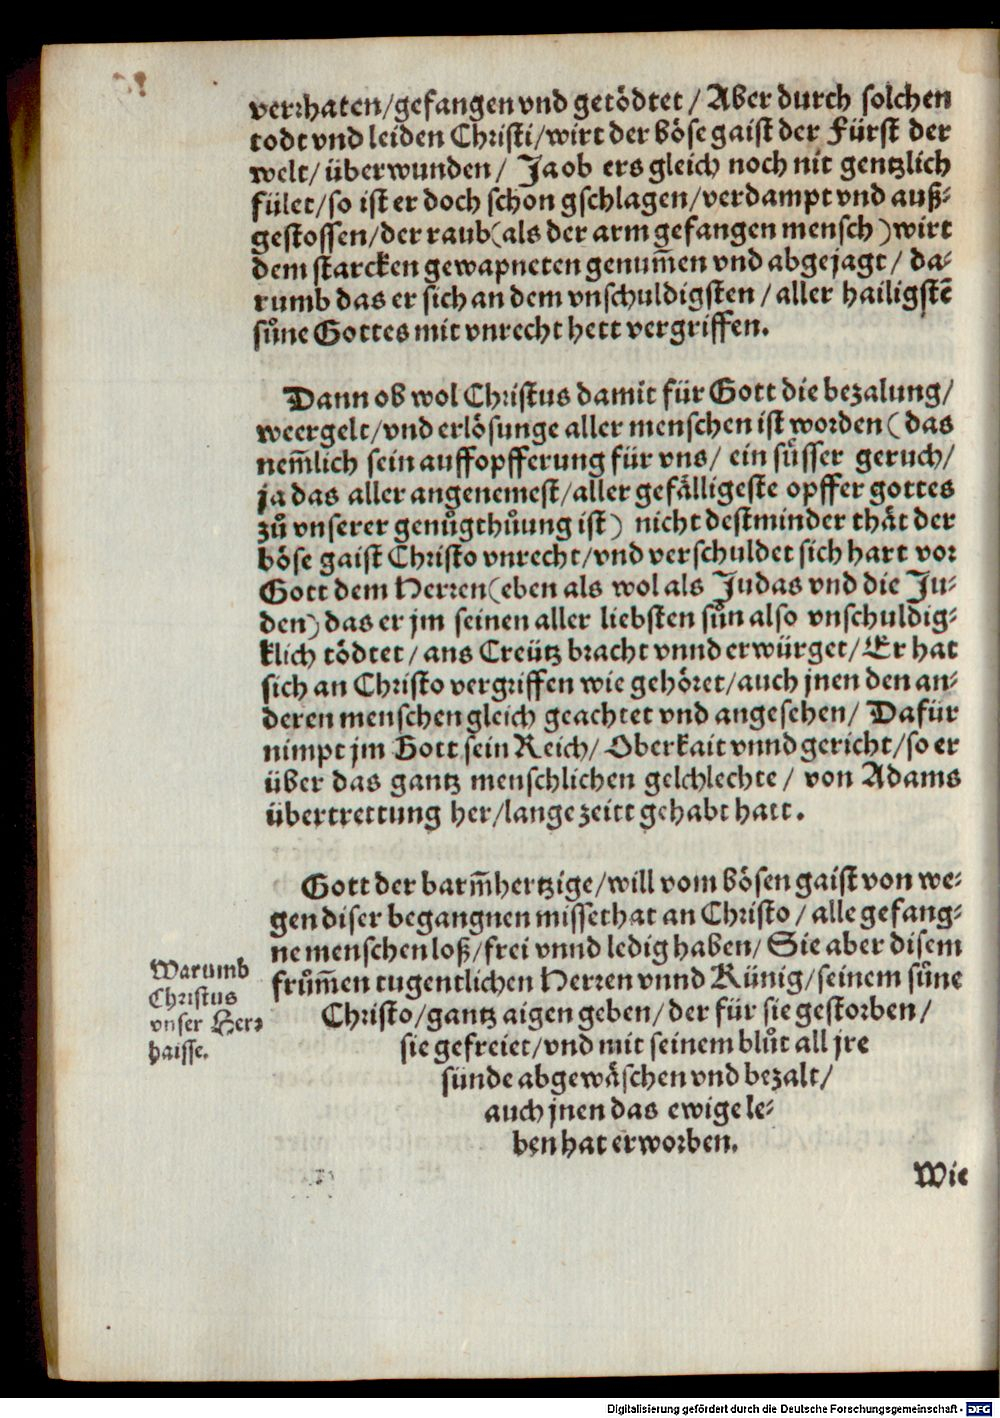 verrhaten/gefangen vnd getödtet / Aber durch solchen
todt vnd leiden Christi/wirt der böse gaist der Fürst der
welt/ überwunden / Ja ob ers gleich noch nit gentzlich
fület/so ist er doch schon gschlagen/verdampt vnd auß⸗
gestossen/der raub(als der arm gefangen mensch )wirt
dem starcken gewapneten genum̃en vnd abgejagt/ da⸗
rumb das er sich an dem vnschuldigsten / aller hailigstẽ
sůne Gottes mit vnrecht hett vergriffen.
Dann ob wol Christus damit für Gott die bezalung/
weergelt/vnd erlösunge aller menschen ist worden ( das
nem̃lich sein auffopfferung für vns/ ein sůsser geruch/
ja das aller angenemest/aller gefälligeste opffer gottes
zů vnserer genůgthůung ist) nicht destminder thät der
böse gaist Christo vnrecht/vnd verschuldet sich hart vor
Gott dem Herren(eben als wol als Judas vnd die Ju⸗
den) das er jm seinen aller liebsten sůn also vnschuldig⸗
klich tödtet / ans Creütz bracht vnnd erwürget/ Er hat
sich an Christo vergriffen wie gehöret/auch jnen den an⸗
deren menschen gleich geachtet vnd angesehen/ Dafür
nimpt jm Gott sein Reich/ Oberkait vnnd gericht/so er
über das gantz menschlichen gelchlechte / von Adams
übertrettung her/lange zeitt gehabt hatt.
Gott der barm̃hertzige/will vom bösen gaist von we⸗
gen diser begangnen missethat an Christo / alle gefang⸗
ne menschen loß/frei vnnd ledig haben/ Sie aber disem
frům̃en tugentlichen Herren vnnd Künig/seinem sůne
Christo/gantz aigen geben/ der für sie gestorben /
sie gefreiet/vnd mit seinem blůt all jre
sünde abgewäschen vnd bezalt/
auch jnen das ewige le⸗
ben hat erworben.
Warumb
Christus
vnser Her⸗
haisse.
Wie
Digitalisierung gefördert durch die Deutsche Forschungsgemeinschaft - DFG